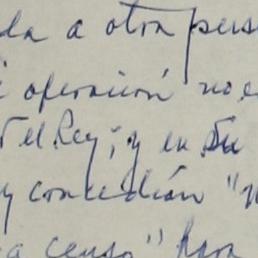 da a otra pers
operación no e
el Rey; y en Su
y concedían "
a censo" para